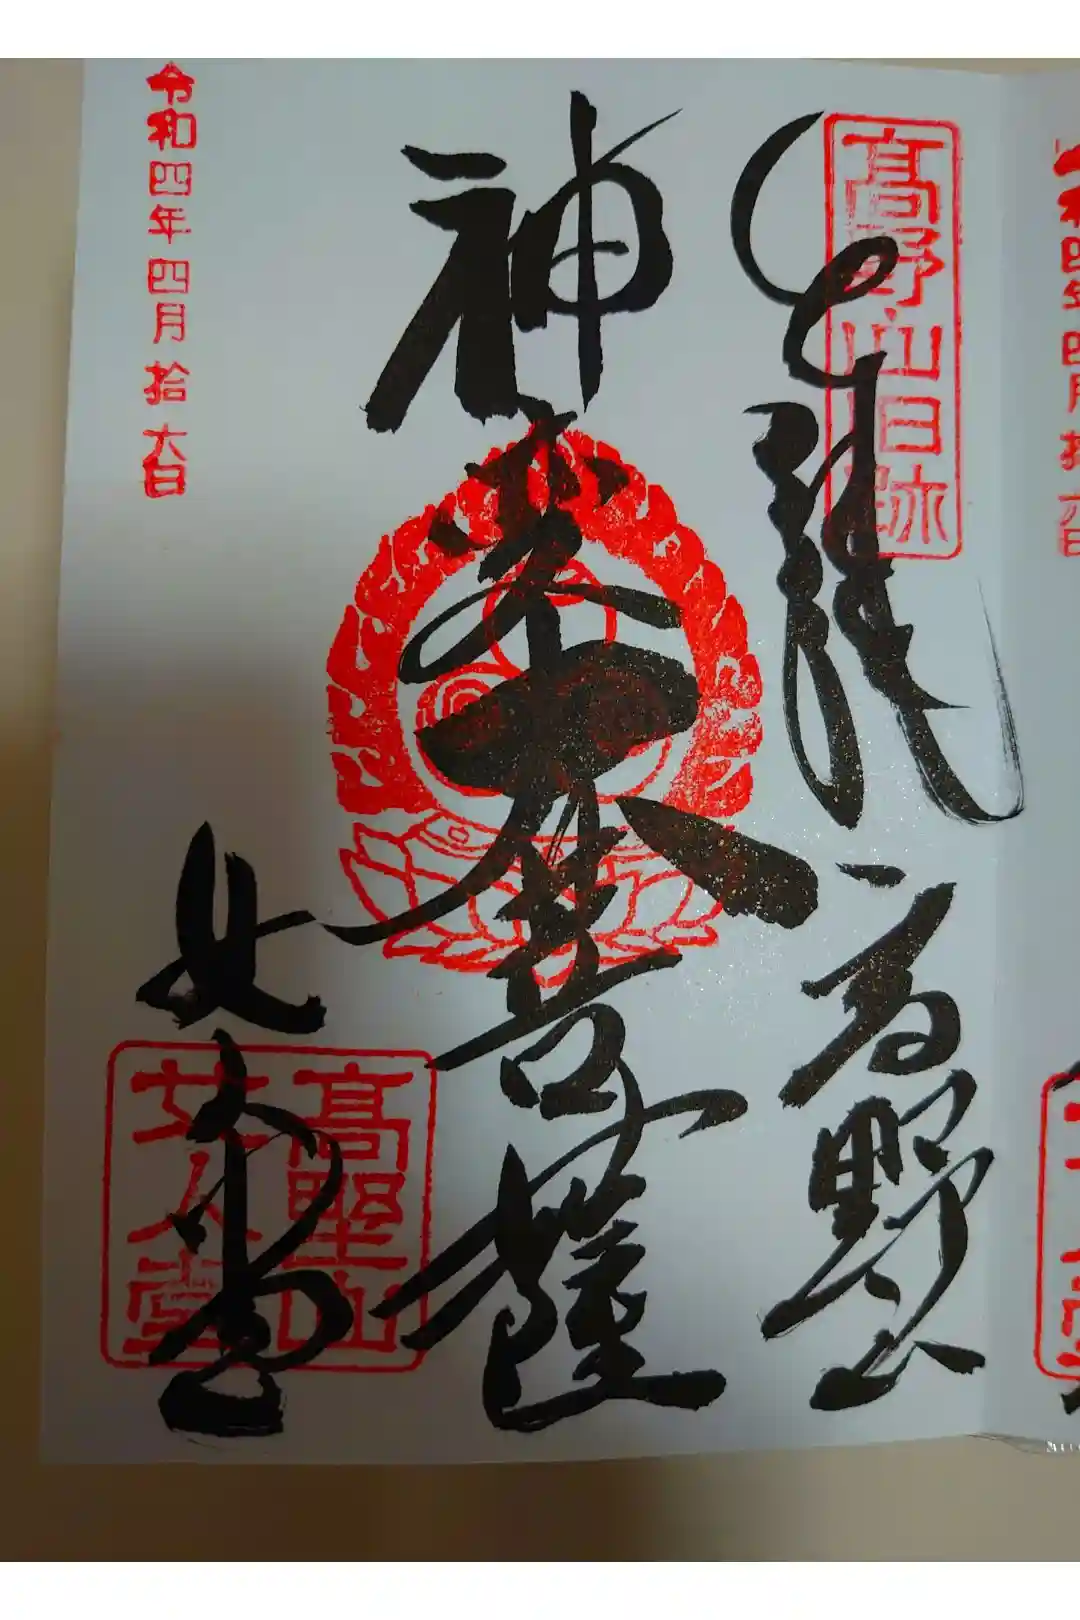 奉拝 高野山
髙野山旧跡
神変大菩薩
女人堂
髙野山
女人堂
令和四年四月拾六日